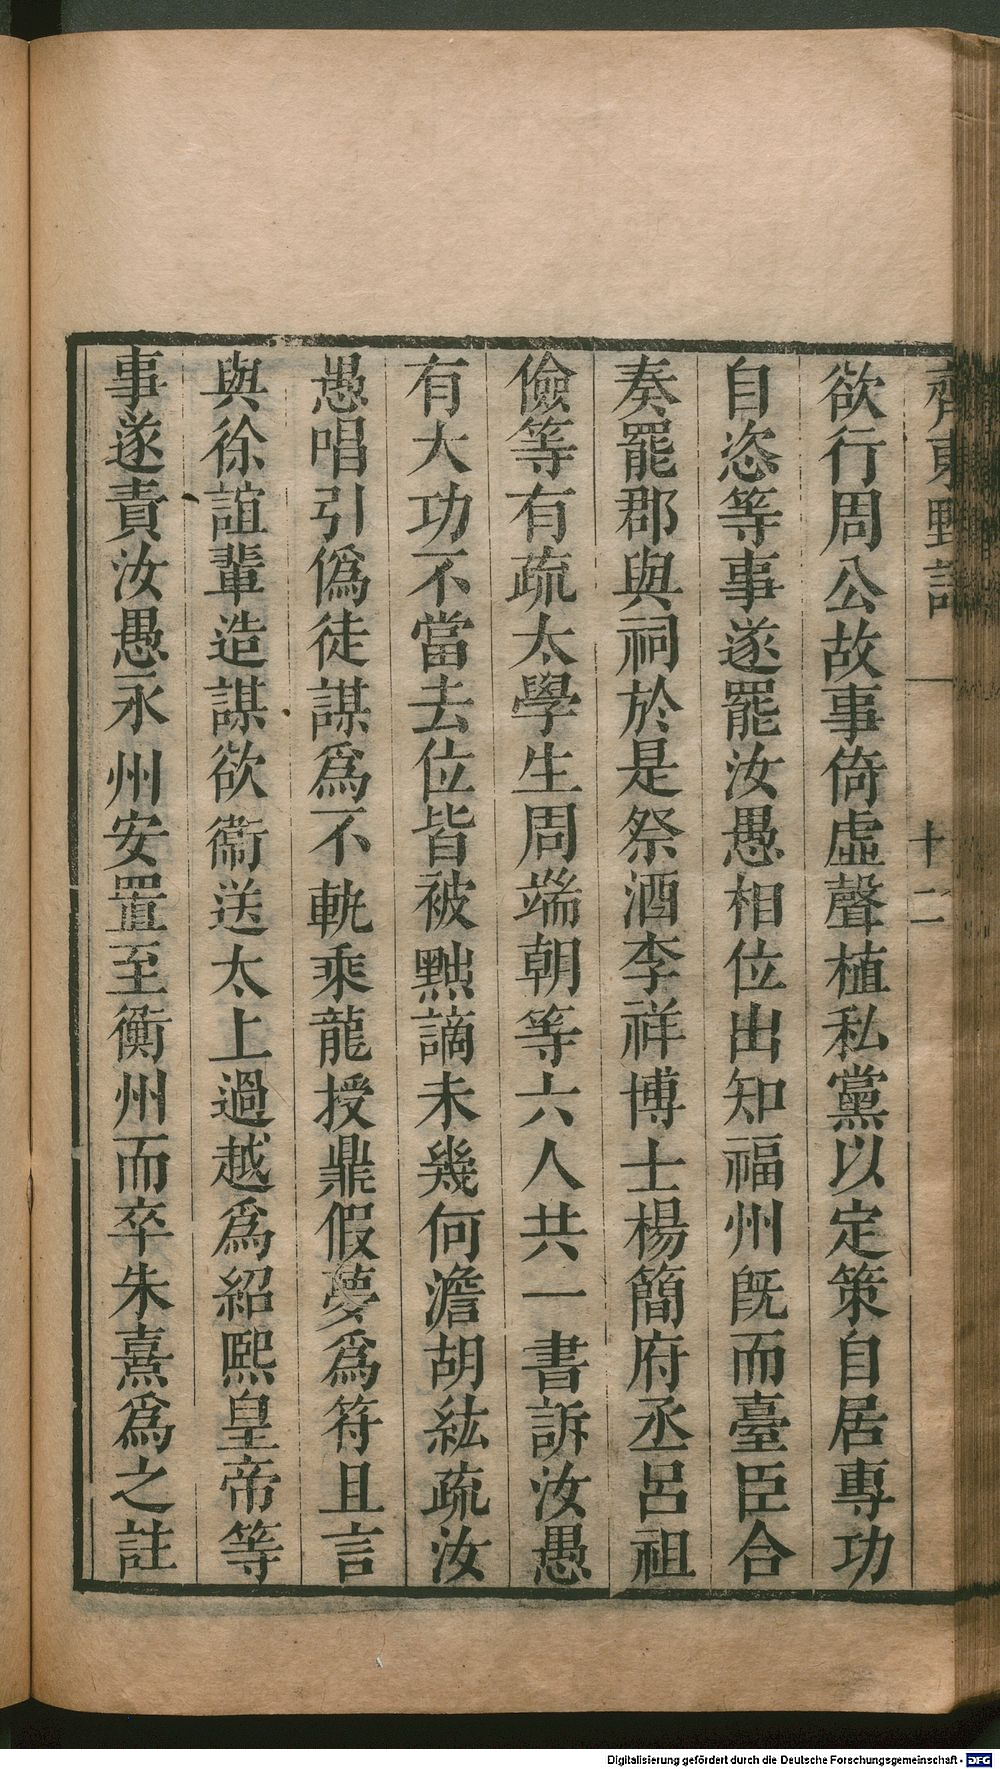 齊東野語
十二
欲行周公故事倚虛聲植私黨以定策自居專功
自恣等事遂罷汝愚相位出知福州旣而臺臣合
奏罷郡與祠於是祭酒李祥博士楊簡府丞呂祖
儉等有疏太學生周端朝等六人共一書訴汝愚
有大功不當去位皆被黜謫未幾何澹胡紘疏汝
愚唱引僞徒謀爲不軌乘龍授鼎假夢爲符且言
與徐誼輩造謀欲衞送太上過越爲紹熙皇帝等
事遂責汝愚永州安置至衡州而卒朱熹爲之註
Digitalisierung gefördert durch die Deutsche Forschungsgemeinschaft - DFG